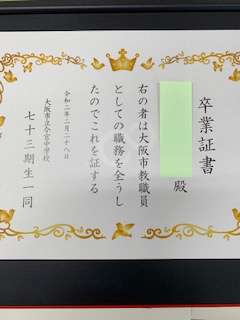 卒業証書
殿
右の者は大阪市教職員
としての職務を全うし
たのでこれを証する
令和二年二月二十八日
大阪市立今宮中学校
七十三期生一同